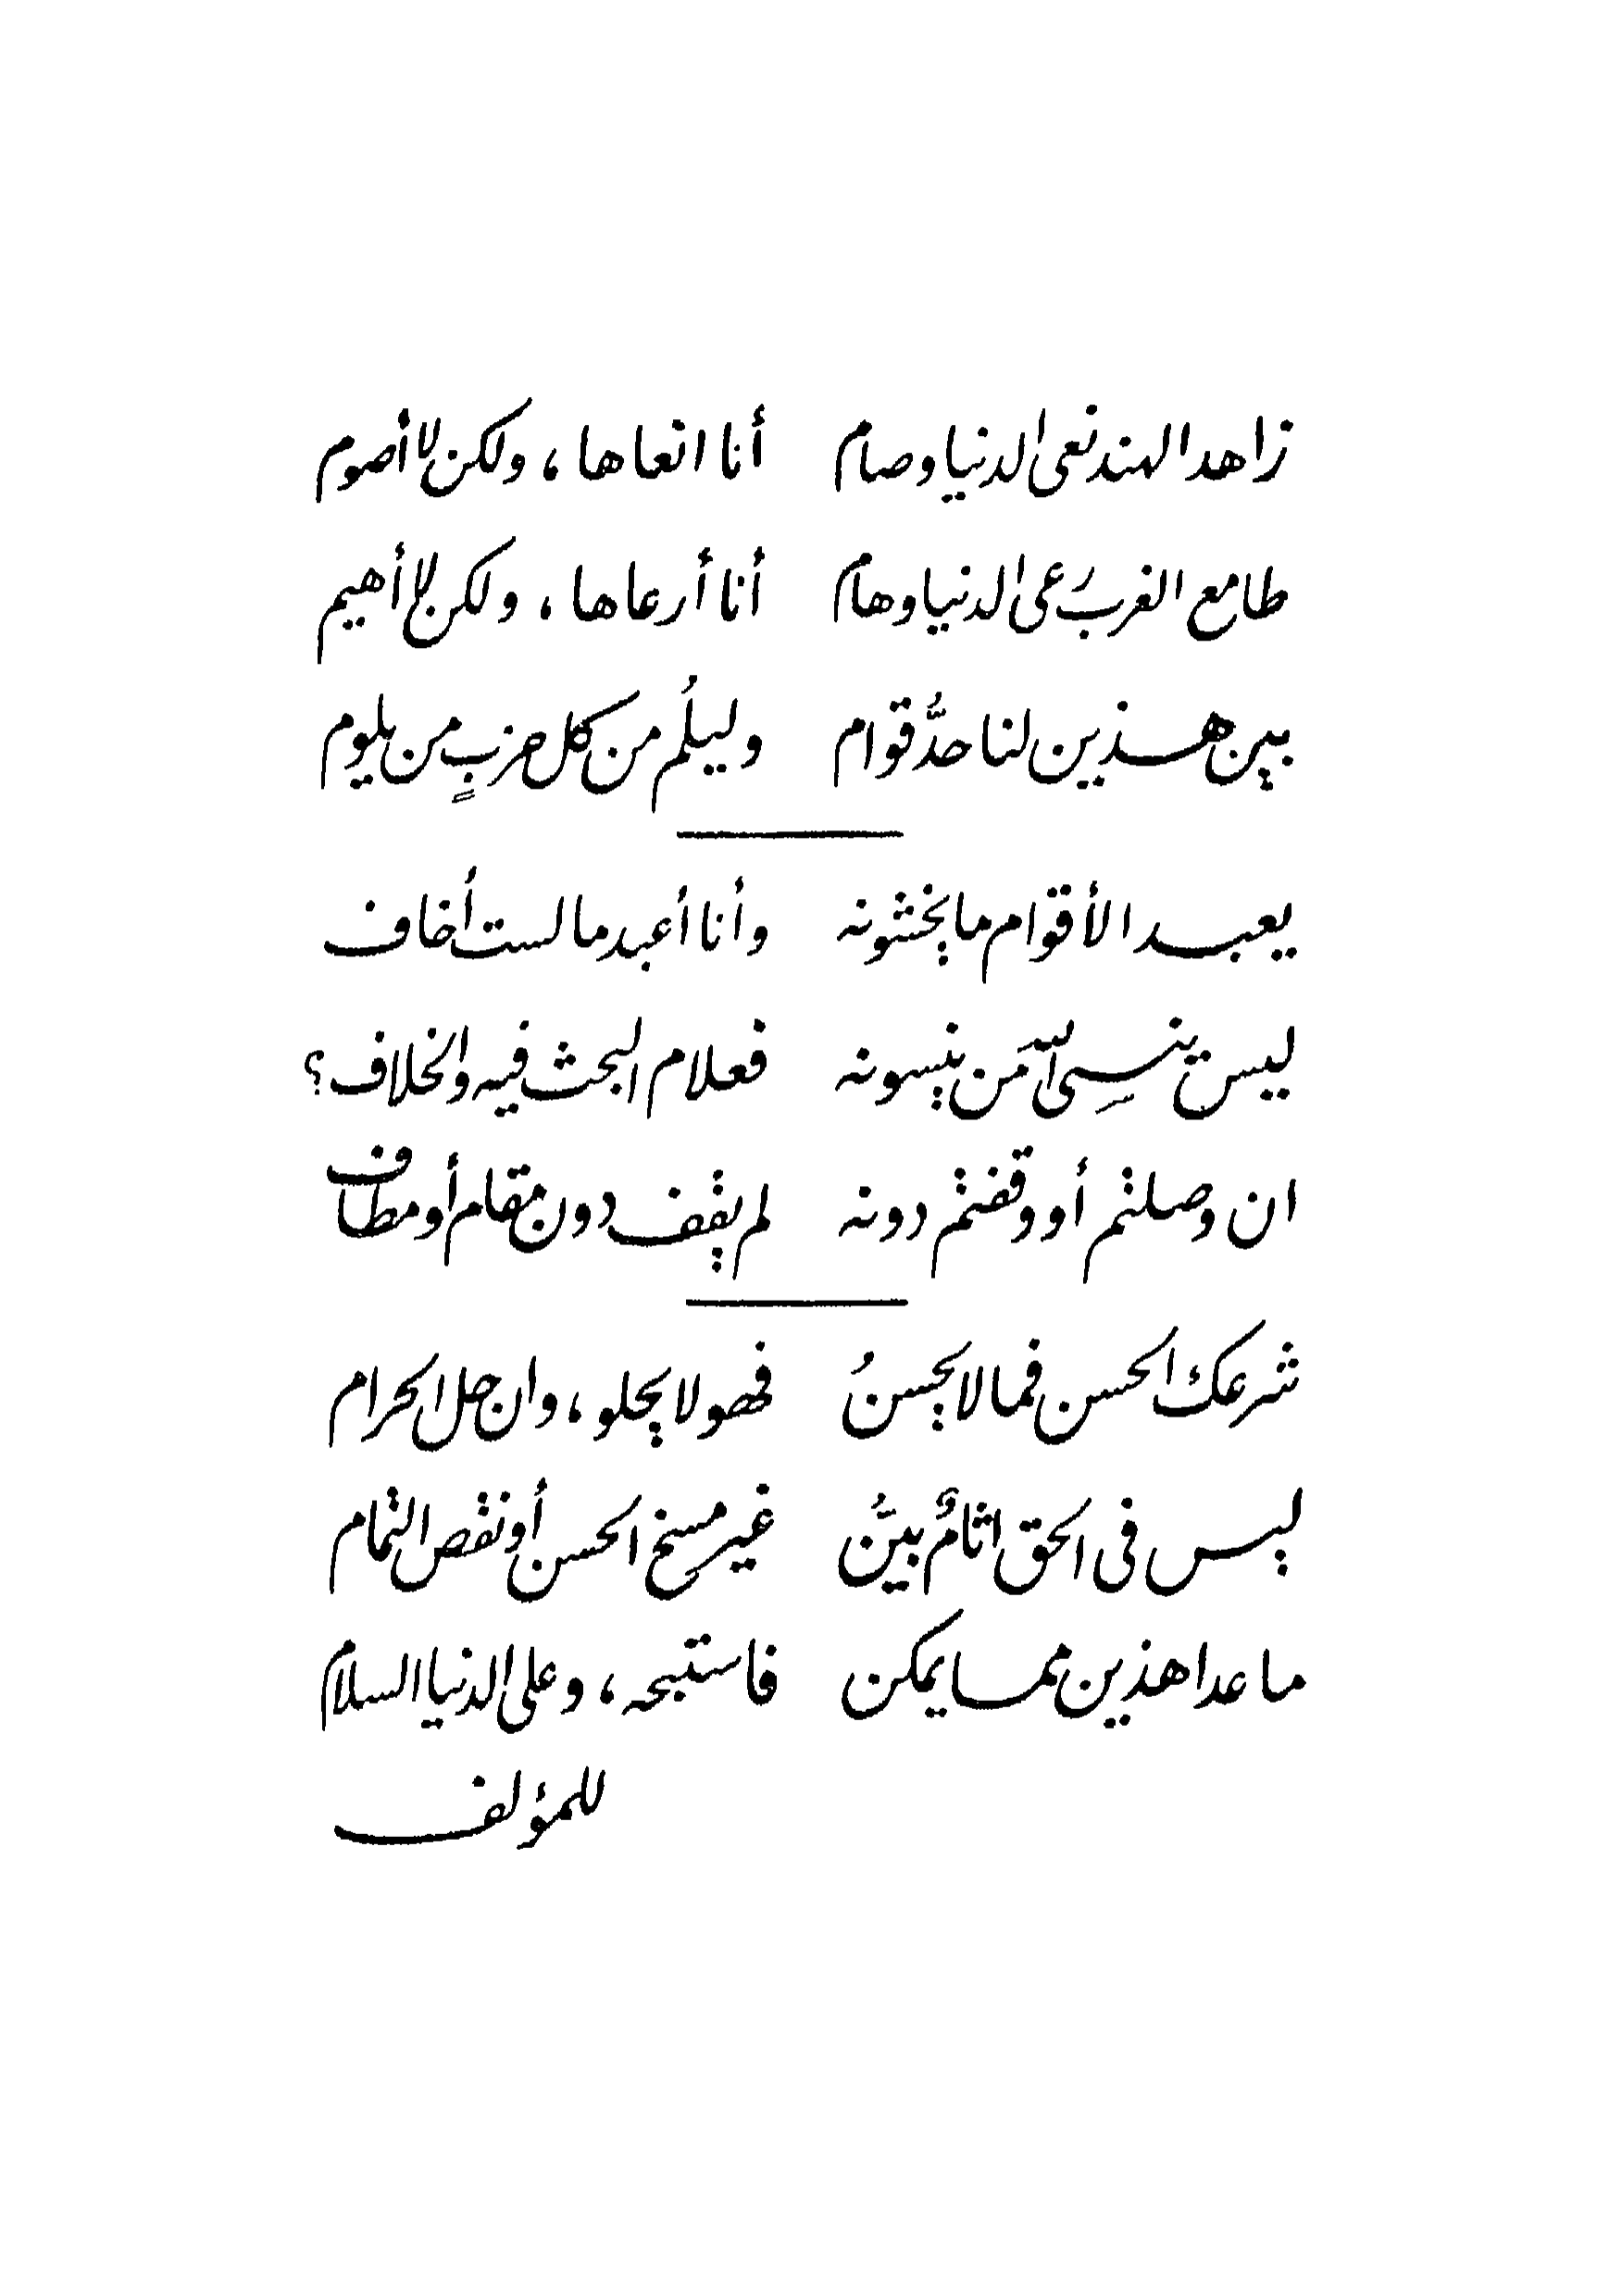 زاهد الهند نعى الدنيا وصام أنا انعاها ، ولكن لا أصوم
طامع الغرب رَعى الدنيا وهام أنا أرعاها ، ولكن لا أهيم
بين هذين لنا حدُّ قوام وليلُم من كل حزبٍ من يلوم
يعبد الأقوام ما يخشونه وأنا أعبد ما لست أخاف
ليس ينسِى الله مَن ينسونه فعلام البحث فيه والخلاف ؟
ان وصلتم أو وقفتم دونه لم يقف دون مقام أو مطاف
شرعك الحسن فما لا يحسنُ فهو لا يحلو ، وان حل الحرام
ليس فى الحق اثامٌ بيِّنُ غير مسخ الحسن أو نقص التمام
ما عدا هذين مما يمكن فاستبحه ، وعلى الدنيا السلام
للمؤلف